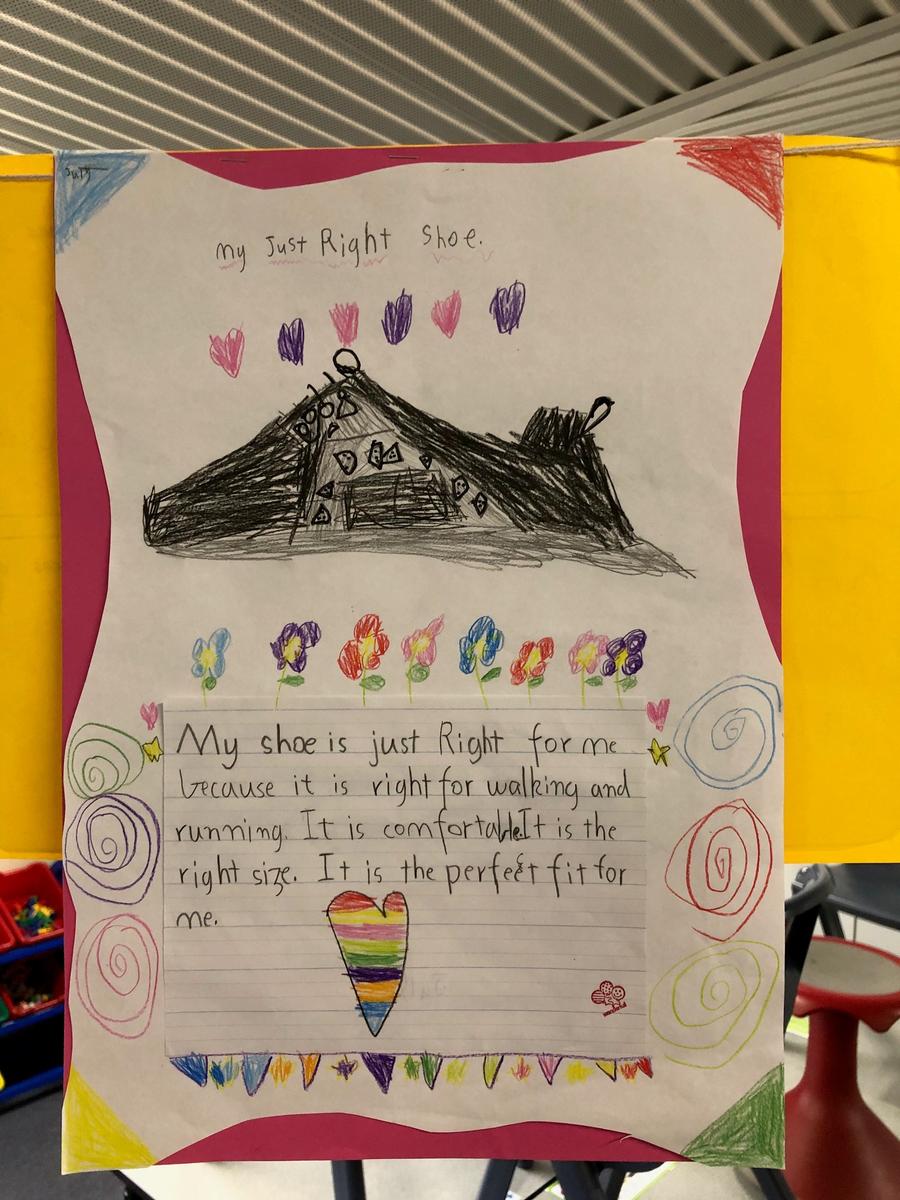 July
my Just Right Shoe.
My shoe is just Right for me
because it is right for walking and
running. It is comfortable.It is the
right size. It is the perfect fit for
me.